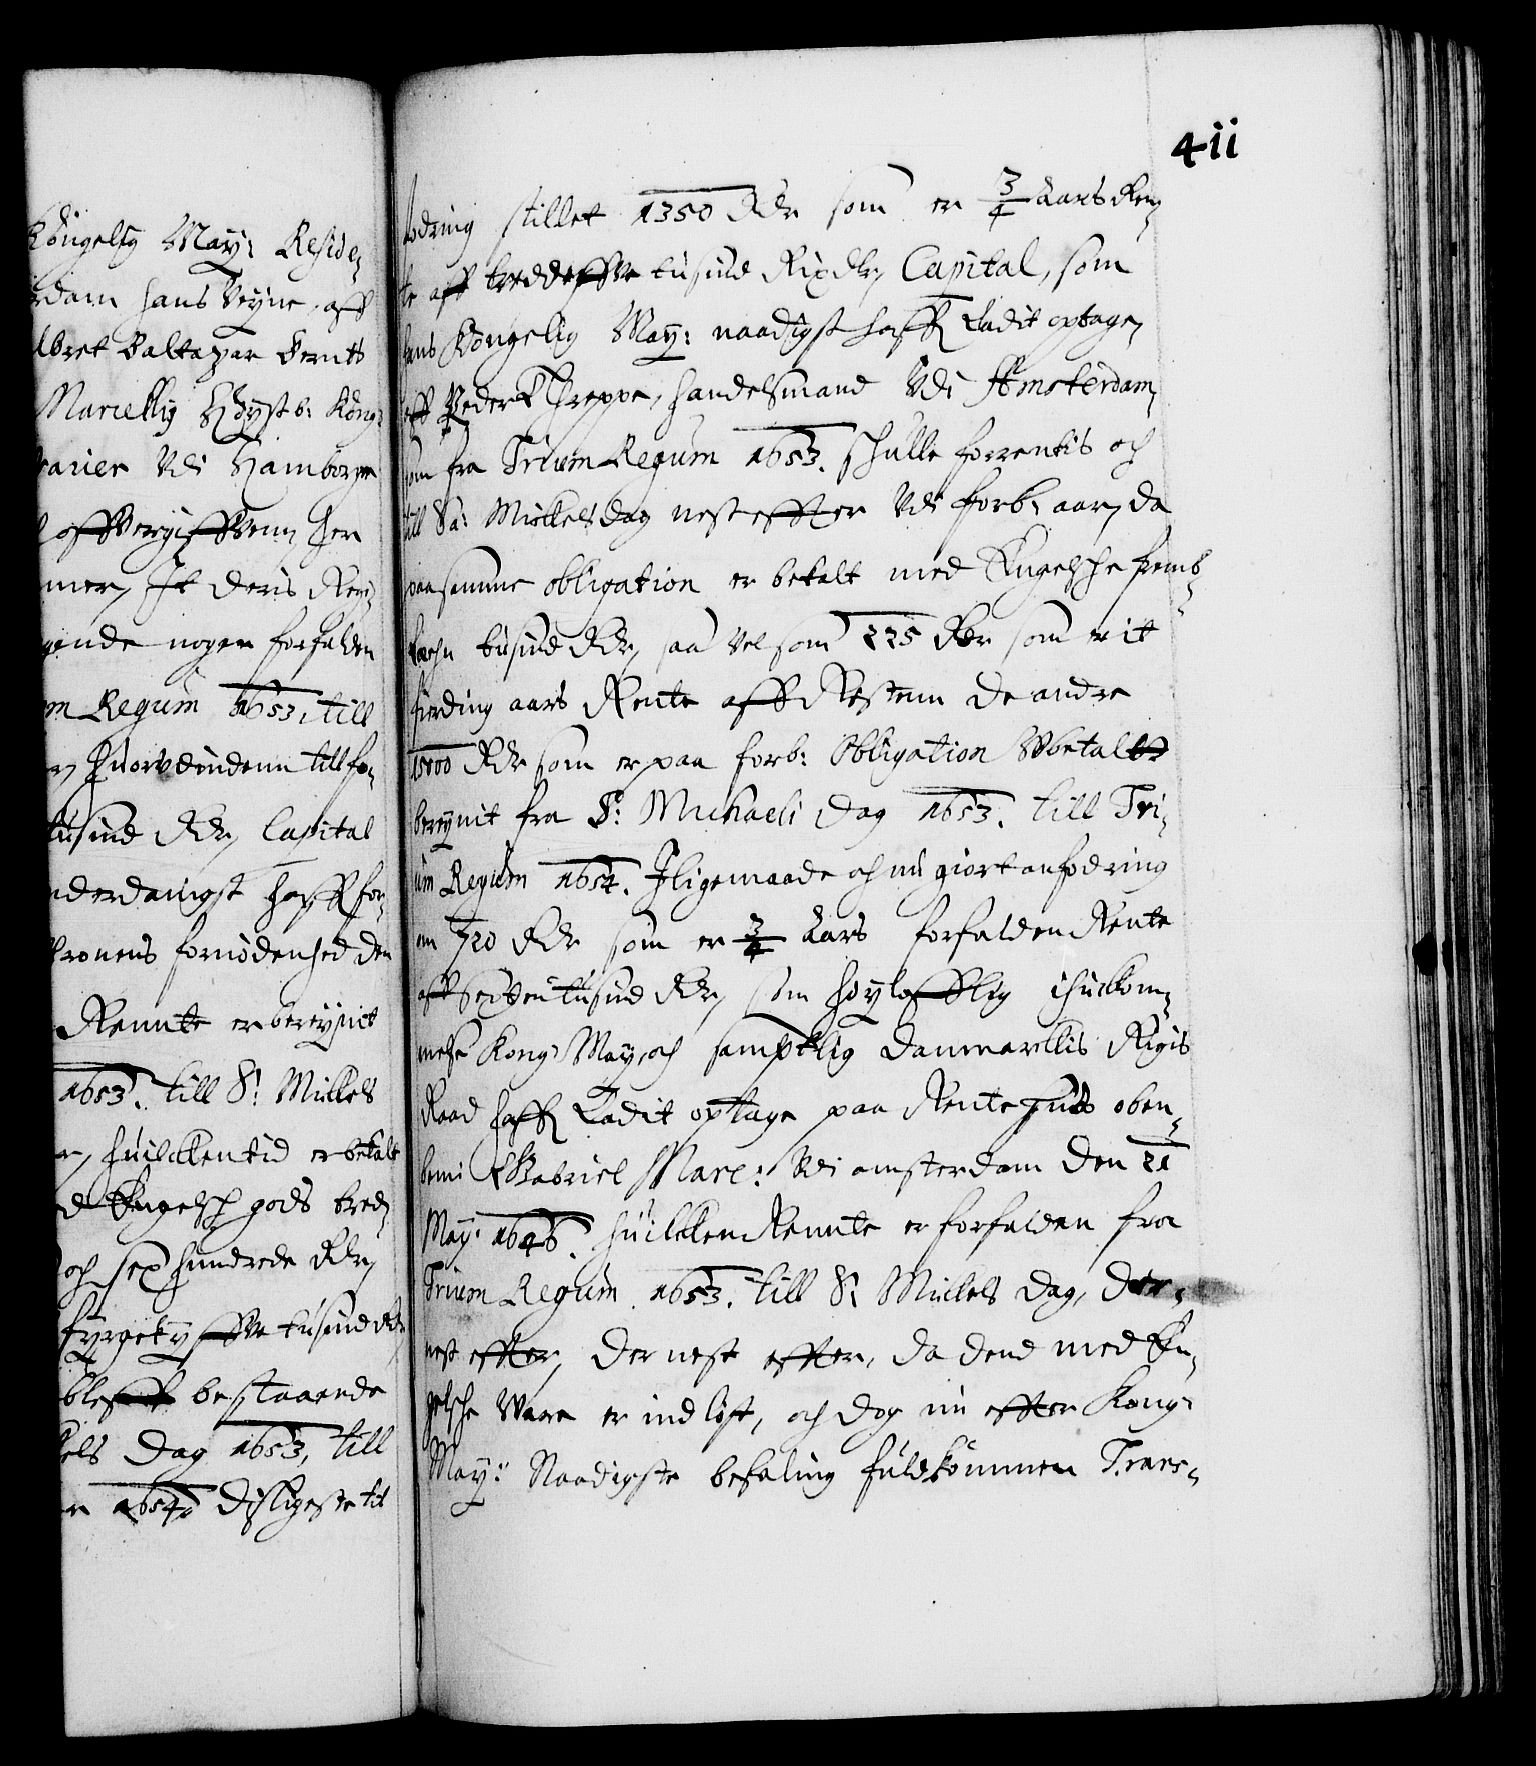 Kongelig May: Reside,
dam hans Teyne, aff
lbret Baltazar Bernts
Marcellig Höystb: Kong:
arier Vdi Hamborge
offvergiffven, her
mer, It deris Regi,
gende noger forfalden
m Regum 1653, till
huorvdindenn till fo,
tusind Rdr, Capital
nderdanigst haffr for,
Cronens fornödenhed den
Rennte er bereignit
1653. till S: Mickels
huilcken tid er betalt
d Engelsch gods tred,
och sex hundrede Rdr,
fyrgetyffve tusind Rdr
bleff bestaaende
els Dag 1653, till
1654. Disligeste til
411
fodring stillet 1350 Rdr som er 3/4 Aars Ren,
te aff tredeffve tusind Rixdlr, Capital, som
hans Kongelig May: naadigst haffr Ladit optage,
aff Peder Threppe, handelsmand Vdi Amsterdam,
som fra Trium Regum 1653. schulle forrentis och
till Sa: Mickelsdag nest effter Vdi forb: aar, da
paa samme obligation er betalt med Engelsche femb,
taehn tusind Rdr, saa vel som 225 Rdr som er it
fierding aars Rente aff Restenn de andre
15000 Rdr som er paa forb: Obligation Vbetalt
bereignit fra S: Michaeli Dag 1653. till Tri,
um Regum 1654. Jligemaade och nu giort anfodring
om 720 Rdr som er 3/4 Aars forfalden Rente
aff sexten tusind Rdr, som höylofflig ihuckom,
melse Kong: May, och samptlig Danmarckis Rigis
Raad haffr Ladit optage paa Rente huos oben,
bemt Gabriel Marc: Vdi amsterdam Den 21
May: 1646. huilcken Rennte er forfalden fra
Trium Regum 1653. till S: Mickels Dag, der,
nest effter, Der nest effter, da dend med En,
gelsche Vare er indlöst, och dog nu effter Kong:
May: Naadigste befaling fuldkommen Trans,